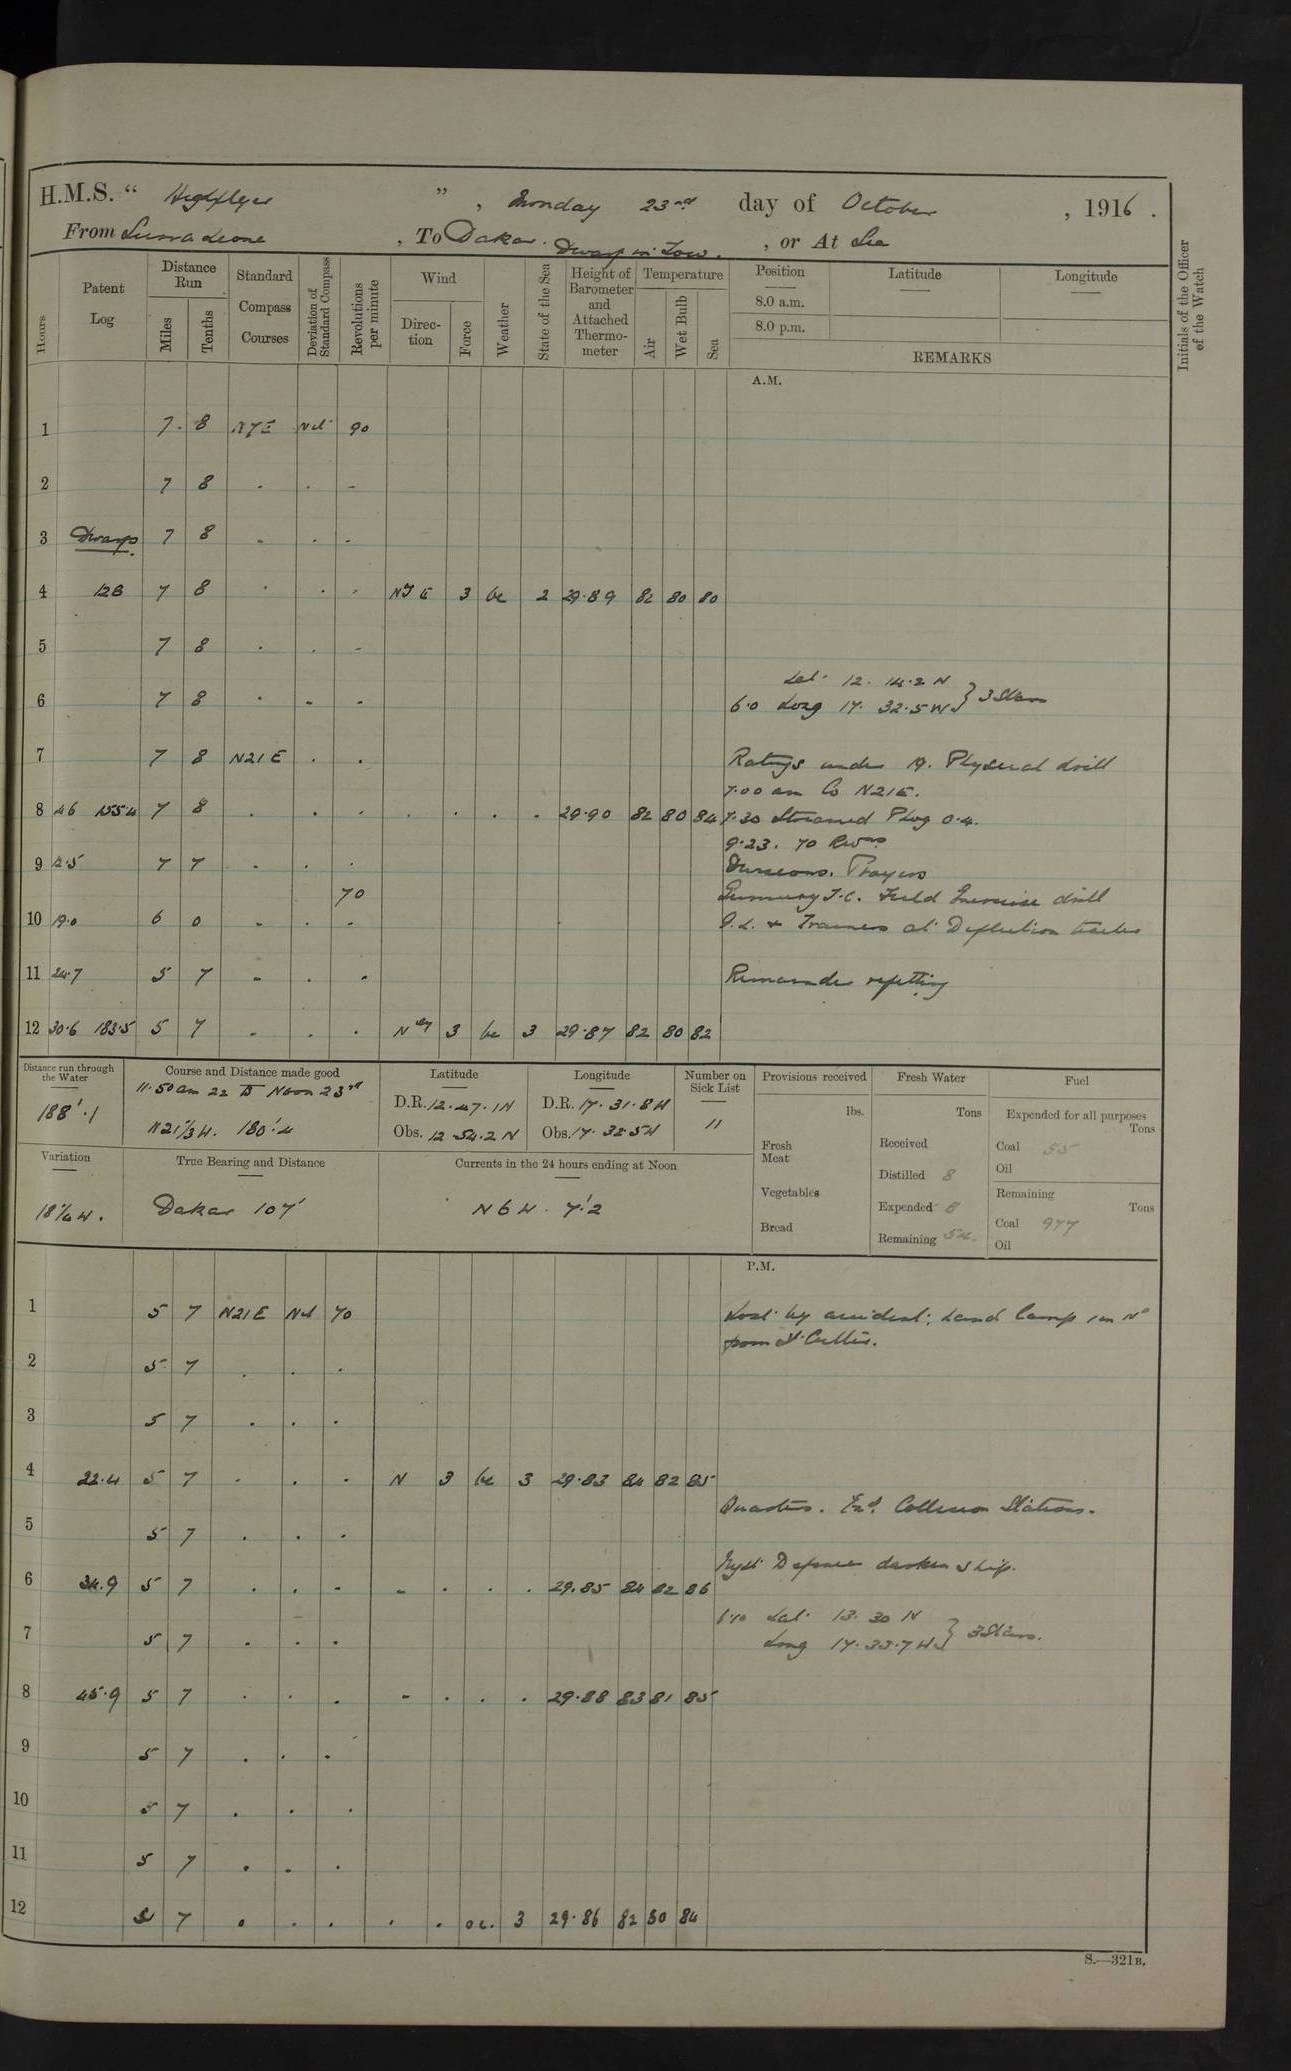 H.M.S. “ Highflyer ” , Monday 23rd day of October , 1916 .
From Sierra Leone , To Dakar. Dwarf in Tow. , or At Sea
Hours
Patent Log
Distance Run
Miles
Tenths
Standard Compass Courses
Deviation of Standard Compass
Revolutions per minute
Wind
Direc- tion
Force
Weather
State of the Sea
Height of Barometer and Attached Thermo- meter
Temperature
Air
Wet Bulb
Sea
Position
8.0 a.m.
8.0 p.m.
Latitude
Longitude
REMARKS
Initials of the Officer of the Watch
A.M.
1 7. 8 N7E Nil 90
2 7 8 . . .
3 Dwarf 7 8 . . .
4 128 7 8 . . . N7E 3 bc 2 29.89 82 80 80
5 7 8 . . .
Lat. 12. 14.2 N
6 7 8 . . . 6.0 Long 17. 32.5 W } 3 Stars
7 7 8 N21E . . Ratings under 19. Physical drill
7.00 am Co N21E.
8 46 155.4 7 8 . . . . . . . 29.90 82 80 84 7.30 Streamed Plog 0.4.
9.23. 70 Revns
9 12.5 7 7 . . . Divisions. Prayers
70 Gunnery T.C. Field Exercise drill
10 19.0 6 0 . . . G.L. & Trainers at Deflection teacher
11 24.7 5 7 . . . Remainder refitting
12 30.6 183.5 5 7 . . . Nly 3 bc 3 29.87 82 80 82
Distance run through the Water
188'.1
Course and Distance made good
11.50 am 22 to Noon 23rd
N 21⅓ W. 180'.4
Latitude
D.R. 12.47.1N
Obs. 12 54.2 N
Longitude
D.R. 17. 31.8 W
Obs. 17. 32.5W
Number on Sick List
11
Provisions received
lbs.
Fresh Meat
Vegetables
Bread
Fresh Water
Tons
Received
Distilled 8
Expended 8
Remaining 54.
Fuel
Expended for all purposes
Tons
Coal 55
Oil
Remaining
Tons
Coal 977
Oil
Variation
18¼ W.
True Bearing and Distance
Dakar 107'
Currents in the 24 hours ending at Noon
N 6 W. 7'.2
P.M.
1 5 7 N21E Nil 70 Lost by accident; hand lamp 1 in No
from St. Cutter.
2 5 7 . . .
3 5 7 . . .
4 22.4 5 7 . . . N 3 bc 3 29.83 84 82 85
Quarters. Exd. Collision Stations.
5 5 7 . . .
Night Defence darken ship.
6 34.9 5 7 . . . . . . . 29.85 84 82 86
6.10 Lat. 13. 30 N
7 5 7 . . . Long 17. 33.7 W } 3 Stars.
8 45.9 5 7 . . . . . . . 29.88 83 81 85
9 5 7 . . .
10 5 7 . . .
11 5 7 . . .
12 5 7 . . . . . oc. 3 29.86 82 80 84
S.—321B.